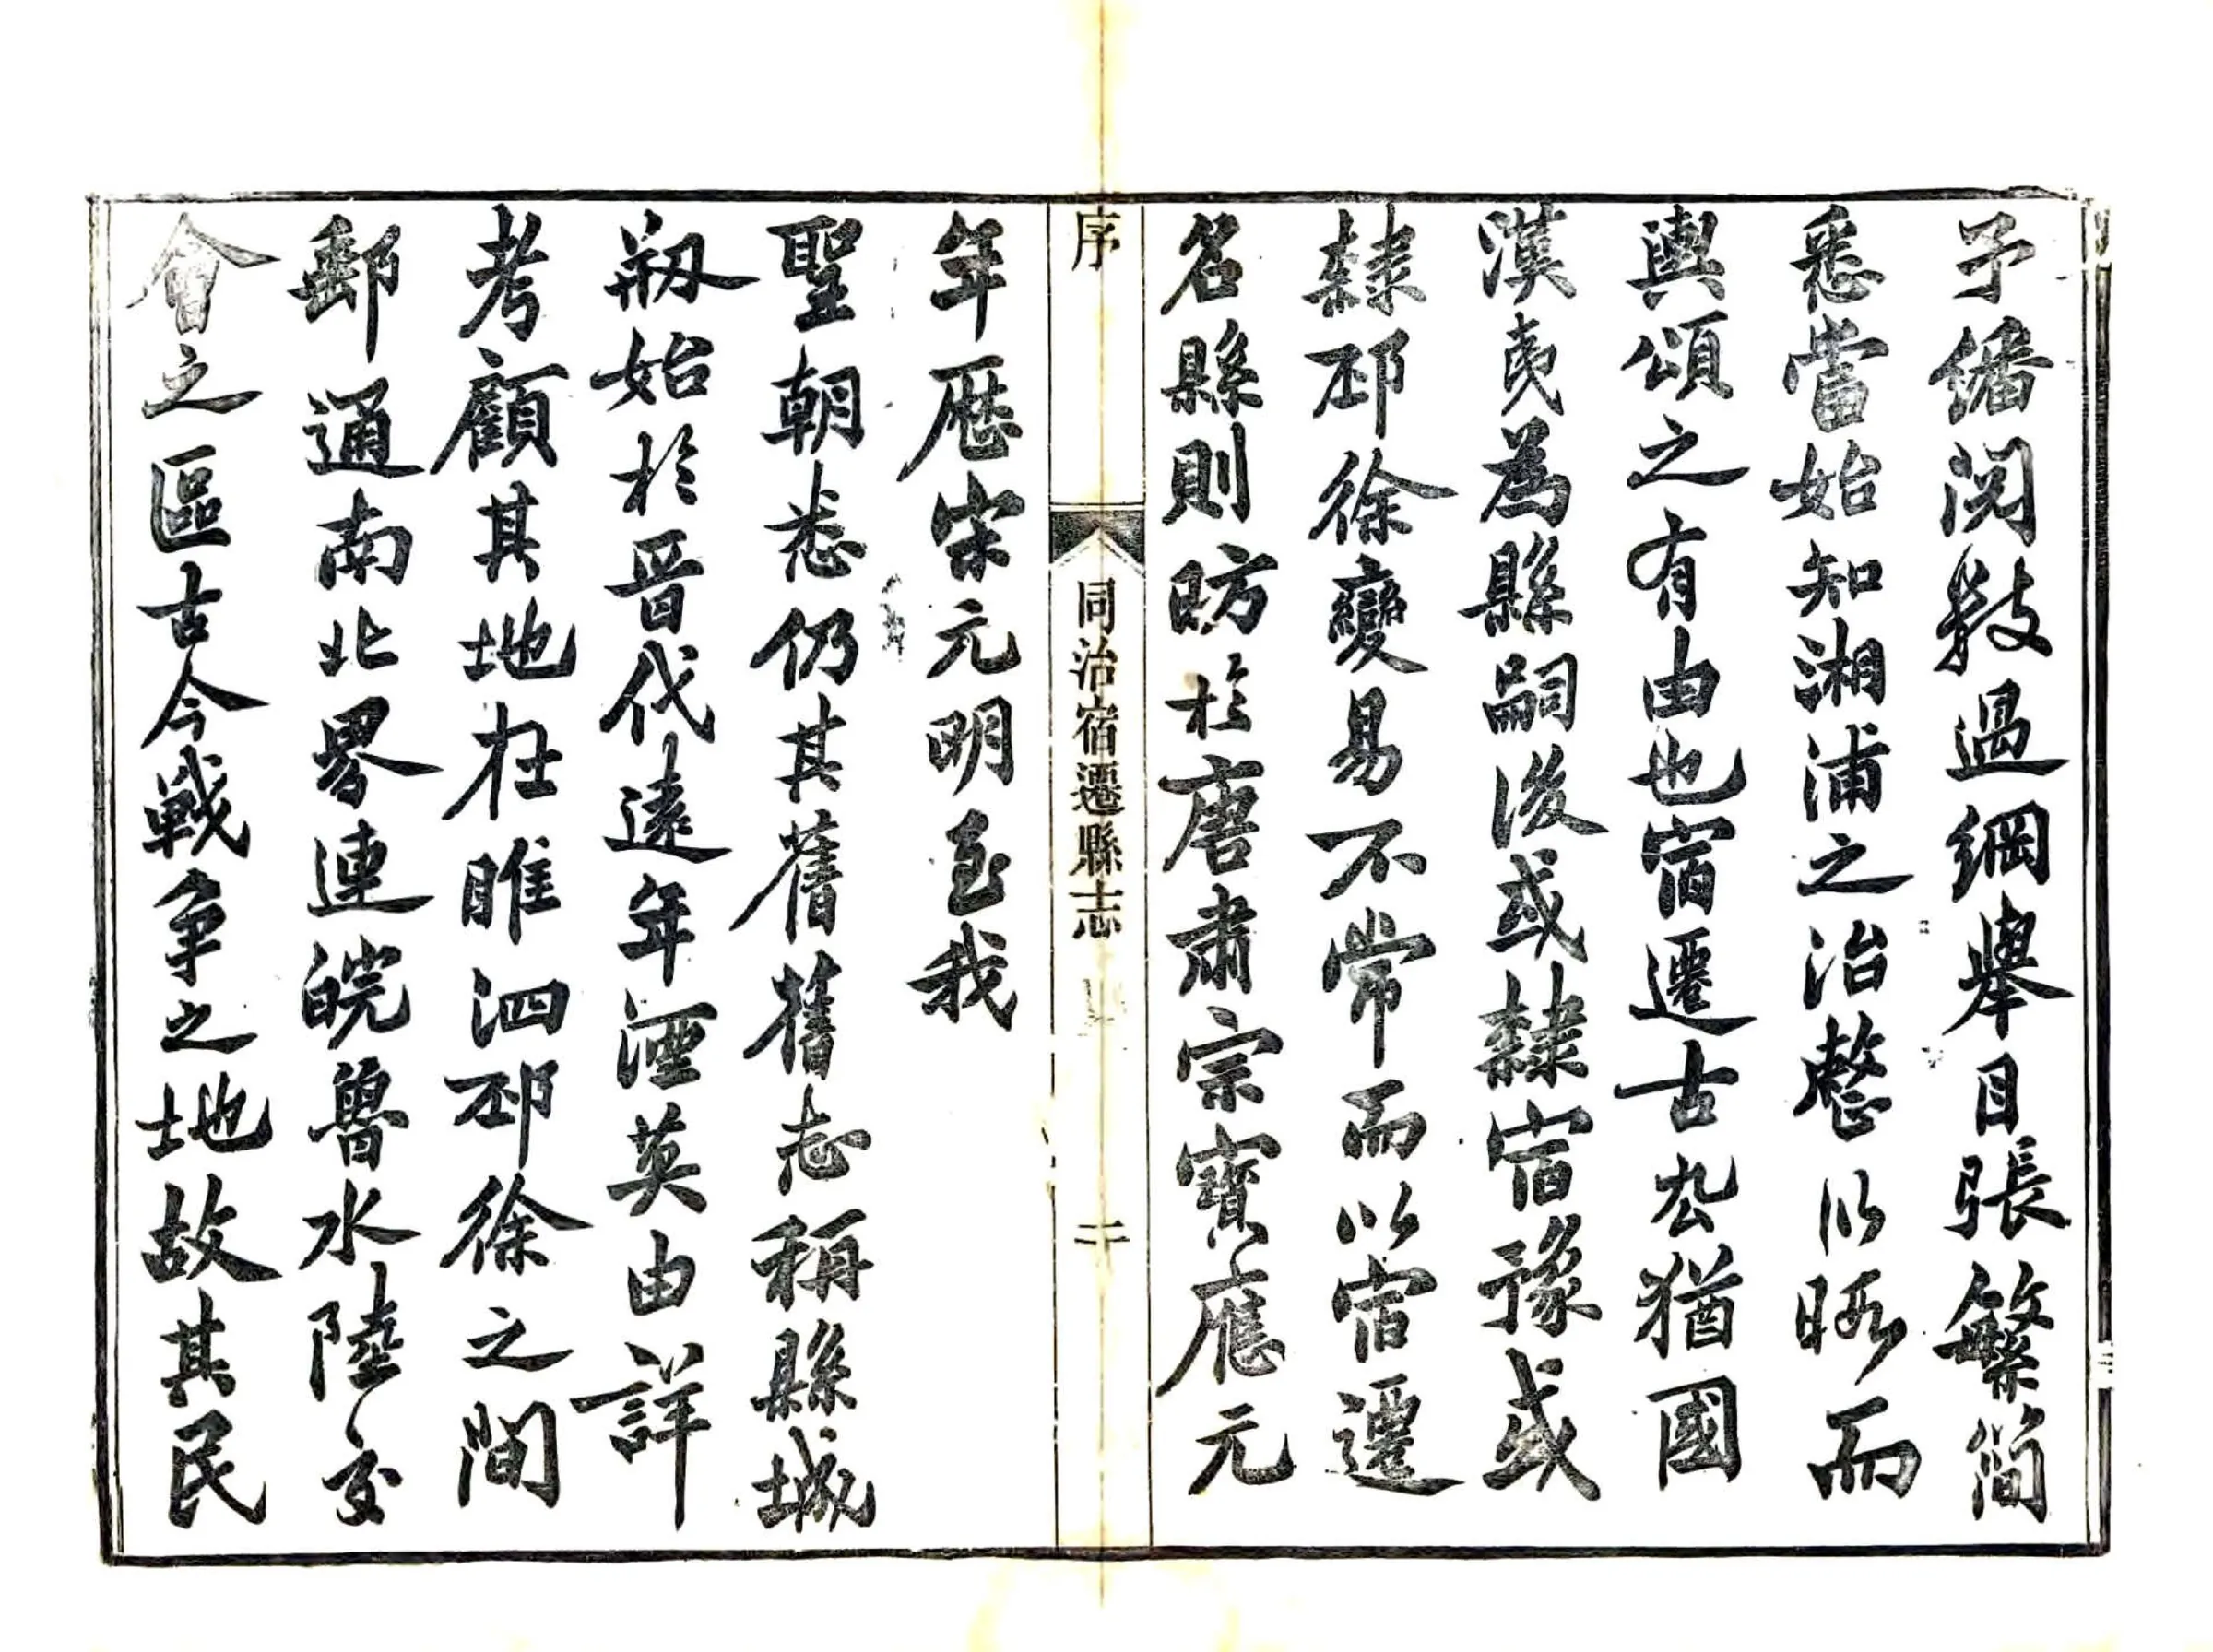 予繙閱數過綱舉目張繁簡
悉當始知湘浦之治整以暇而
輿頌之有由也宿遷古厹猶國
漢夷為縣嗣後或隸宿豫或
隸邳徐變易不常而以宿遷
名縣則昉於唐肅宗寶應元
序
同治宿遷縣志
二
年歷宋元明至我
聖朝悉仍其舊舊志稱縣城
剏始於晉代遠年湮莫由詳
考顧其地在睢泗邳徐之間
郵通南北界連皖魯水陸交
會之區古今戰爭之地故其民